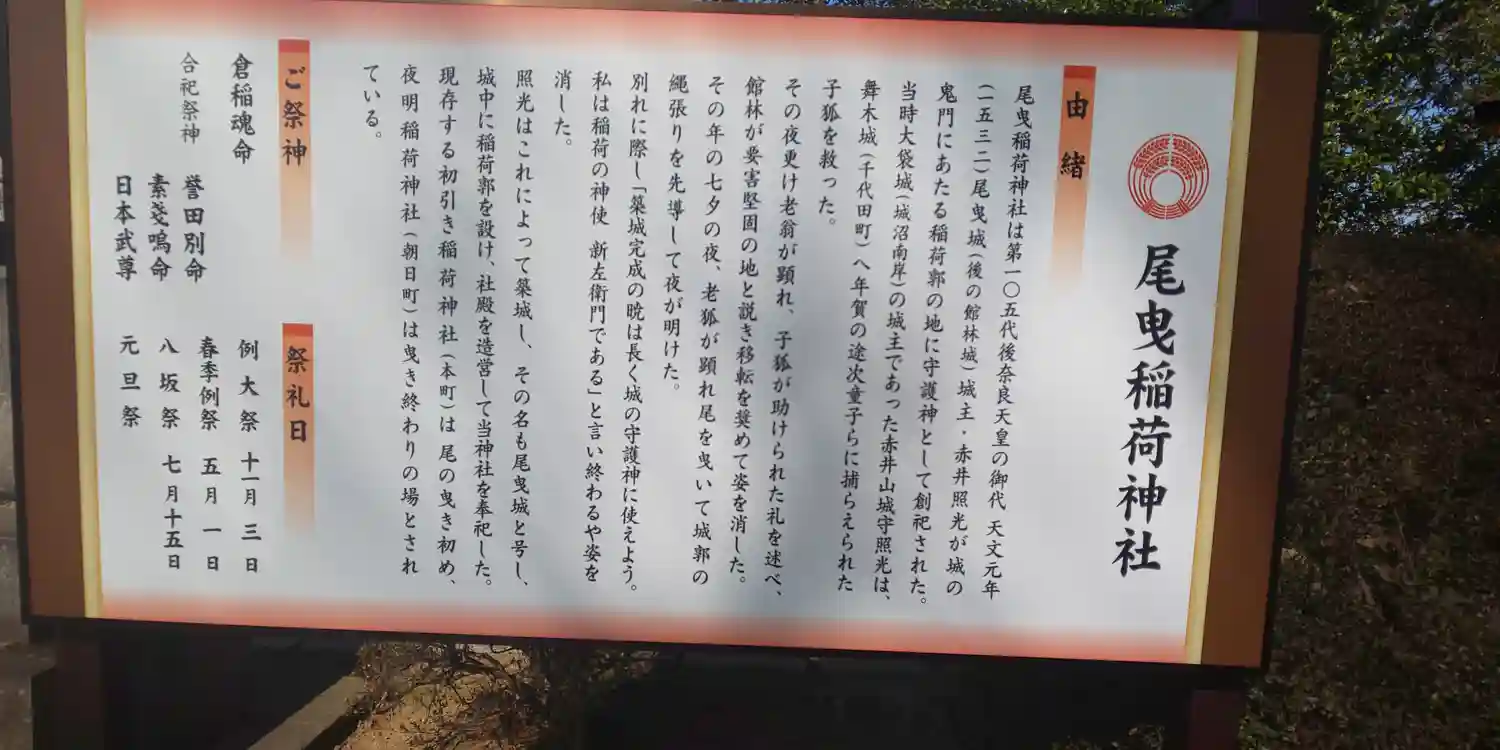 尾曳稲荷神社
由緒
尾曳稲荷神社は第一〇五代後奈良天皇の御代 天文元年
(一五三二)尾曳城(後の館林城)城主・赤井照光が城の
鬼門にあたる稲荷郭の地に守護神として創祀された。
当時大袋城(城沼南岸)の城主であった赤井山城守照光は、
舞木城(千代田町)へ年賀の途次童子らに捕らえられた
子狐を救った。
その夜更け老翁が顕れ、子狐が助けられた礼を述べ、
館林が要害堅固の地と説き移転を奨めて姿を消した。
その年の七夕の夜、老狐が顕れ尾を曳いて城郭の
縄張りを先導して夜が明けた。
別れに際し「築城完成の暁は長く城の守護神に使えよう。
私は稲荷の神使 新左衛門である」と言い終わるや姿を
消した。
照光はこれによって築城し、その名も尾曳城と号し、
城中に稲荷郭を設け、社殿を造営して当神社を奉祀した。
現存する初引き稲荷神社(本町)は尾の曳き初め、
夜明稲荷神社(朝日町)は曳き終わりの場とされ
ている。
ご祭神
倉稲魂命
合祀祭神
誉田別命
素戔嗚命
日本武尊
祭礼日
例大祭 十一月三日
春季例祭 五月一日
八坂祭 七月十五日
元旦祭